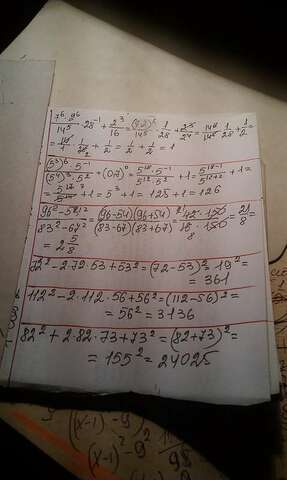 7⁶ · 2⁶ / 14⁵ · 28⁻¹ + 2³/16 = (7·2)⁶/14⁵ · 1/28 + 2³/2⁴ = 14⁶/14⁵ · 1/28 + 1/2 =
= 14/1 · 1/28 + 1/2 = 1/2 + 1/2 = 1
(5³)⁶ · 5⁻¹ / (5⁴)³ · 5² + (0,7)⁰ = 5¹⁸ · 5⁻¹ / 5¹² · 5² + 1 = 5¹⁸⁻¹ / 5¹²⁺² + 1 =
= 5¹⁷ / 5¹⁴ + 1 = 5³ + 1 = 125 + 1 = 126
96² - 54² / 83² - 67² = (96-54)(96+54) / (83-67)(83+67) = 42 · 150 / 16 · 150 = 21/8 =
= 2 5/8
72² - 2·72·53 + 53² = (72-53)² = 19² =
= 361
112² - 2·112·56 + 56² = (112-56)² =
= 56² = 3136
82² + 2·82·73 + 73² = (82+73)² =
= 155² = 24025
(x-1) - 9
(x-1)² - 9²